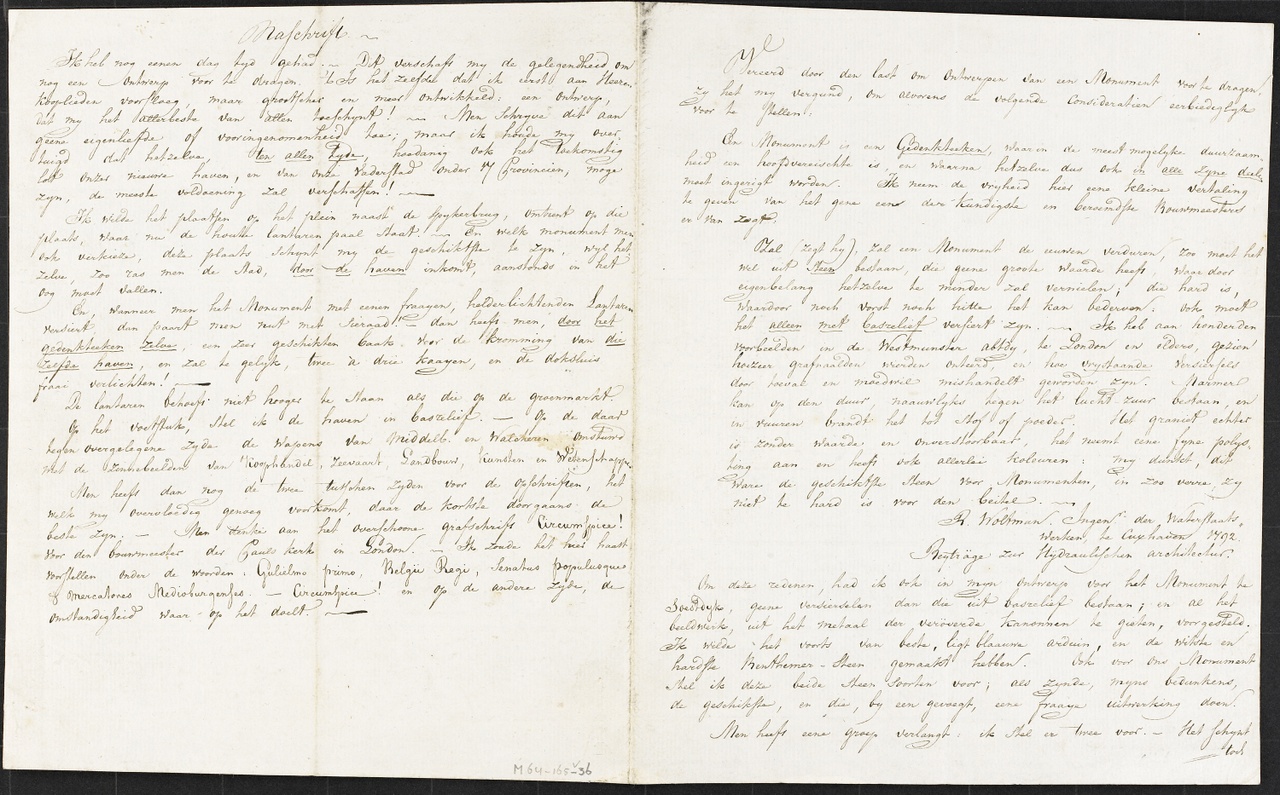 Naschrift ~
Ik heb nog eenen dag tyd gehad. — Dit verschaft my de gelegendheid om
nog een ontwerp voor te dragen. 't Is het zelfde dat ik eerst aan Heeren
Kooplieden voorsloeg, maar grootscher en meer ontwikkeld: een ontwerp,
dat my het allerbeste van allen toeschynt! — Men Schryve dit aan
geene eigenliefde of vooringenomenheid toe; maar ik houde my over
tuigd dat hetzelve, ten allen tyde, hoedanig ook het toekomstig
lott onzer nieuwe haven, en van onze Vaderstad onder 17 Provincien, moge
zyn, de meeste voldoening zal verschaffen! —
Ik wilde het plaatsen op het plein naast de Spykerbrug, omtrent op die
plaats, waar nu de houte lantaren paal staat — En welk monument men
ook verkieze, deze plaats schynt my de geschiktste te zyn, wyl het
zelve, zoo ras men de Stad, door de haven inkomt, aanstonds in het
oog moet vallen.
En, wanneer men het Monument met eenen fraayen, helderlichtenden Lantaren
versiert, dan paart men nut met sieraad! — dan heeft men, door het
gedenkteeken zelve, een zeer geschikten baak voor de kromming van die
zelfde haven, en zal te gelyk, twee a drie kaayen, en de doksluis
fraai verlichten! —
De lantaren behoeft niet hooger te staan als die op de groenmarkt
Op het voetstuk, stel ik de haven in baszelief. — Op de daar
tegen overgelegene zyde de wapens van Middelb. en Walcheren omstuwd
met de zinnebeelden van Koophandel, Zeevaart, Landbouw, Kunsten en Wetenschappen
Men heeft dan nog de twee tusschen zyden voor de opschriften, het
welk my overvloedig genoeg voorkomt, daar de kortste doorgaans de
beste zyn. — Men denke aan het overschoone grafschrift Circumspice!
voor den bouwmeester der Pauls kerk in London. — Ik zoude het hier haast
voorstellen onder de woorden: Gulielmo primo, Belgii Regi, Senatus populusque
& mercatores Medioburgenses. — Circumspice! en op de andere zyde, de
omstandigheid waar op het doelt. —
M 64-165 v-36
Vereerd door den last om ontwerpen van een Monument voor te dragen,
zy het my vergund, om alvorens de volgende Consideratien eerbiediglyk
voor te stellen:
Een Monument is een Gedenkteeken, waarin de meest mogelyke duurzaam
heid een hoofdvereischte is, en waarna hetzelve dus ook in alle zyne deelen
moet ingerigt worden. Ik neem de vryheid hier eene kleine vertaling
te geven van het gene een der kundigste en beroemdste Bouwmeesters
er van zegt.
Zal (zegt hy), zal een Monument de eeuwen verduren, zoo moet het
wel uit steen bestaan, die geene groote waarde heeft, waar door
eigenbelang hetzelve te minder zal vernielen; die hard is,
waardoor noch vorst noch hitte het kan bederven. Ook moet
het alleen met baszelief versiert zyn. — Ik heb aan honderden
voorbeelden in de Westmunster abtdy, te London en elders, gezien
hoezeer grafnaalden wierden onteerd, en hoe vrystaande versiersels
door toeval en moedwil mishandelt geworden zyn. Marmer
kan op den duur, naauwlyks tegen het lucht zuur bestaan, en
in vuuren brandt het tot stof of poeder. Het graniet echter
is zonder waarde en onverstoorbaar, het neemt eene fyne polys,
ting aan en heeft ook allerlei kolouren: my dunkt, dit
ware de geschiktste steen voor Monumenten, in zoo verre, zy
niet te hard is voor den beitel. —
R. Woltman. Ingenr. der Waterstaats,
Werken, te Cuxhaven 1792.
Beyträge zur Hydraulischen architectur.
Om deze redenen, had ik ook in myn ontwerp voor het Monument te
Soestdyk, geene versierselen dan die uit baszelief bestaan; en al het
beeldwerk, uit het metaal der veroverde kanonnen te gieten, voorgesteld.
Ik wilde het voorts van beste, ligt blaauwe arduin, en de witste en
hardste Benthemer-Steen gemaakt hebben. Ook voor ons Monument
stel ik deze beide steen soorten voor; als zynde, myns bedunkens,
de geschiktste, en die, by een gevoegt, eene fraaye uitwerking doen.
Men heeft eene groep verlangt: ik stel er twee voor. — Het schynt
toch